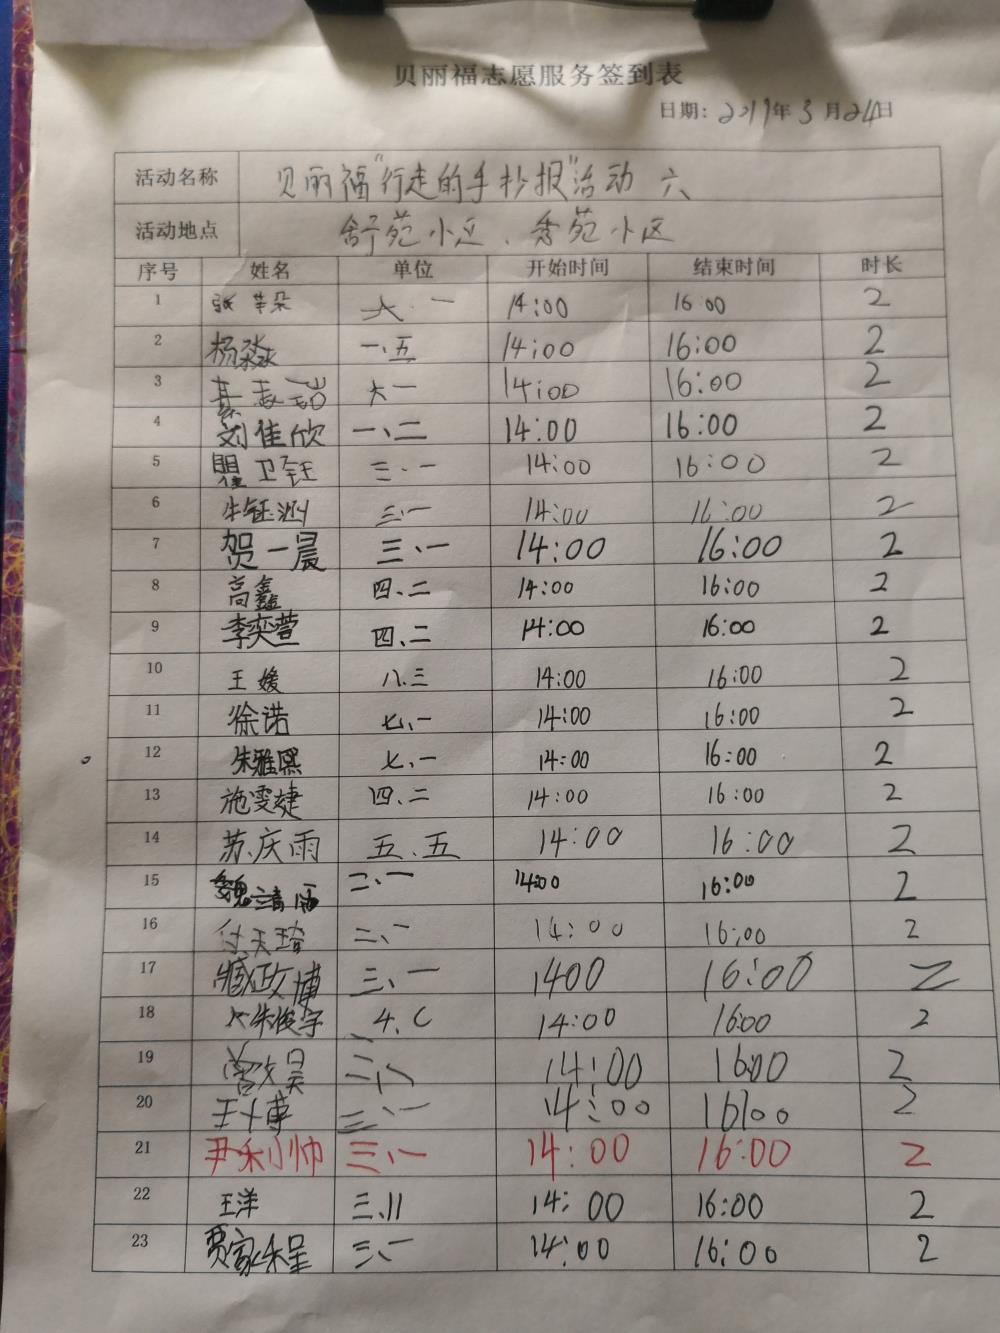 贝丽福志愿服务签到表
日期: 2019年3月24日
活动名称 贝丽福“行走的手抄报”活动 六
活动地点 舒苑小区、秀苑小区
序号 姓名 单位 开始时间 结束时间 时长
1 张芊朵 六.一 14:00 16:00 2
2 杨淼 一、五 14:00 16:00 2
3 六一 14:00 16:00 2
4 刘佳欣 一、二 14:00 16:00 2
5 卫钰 三.一 14:00 16:00 2
6 牛钰 三.一 14:00 16:00 2
7 贺一晨 三、一 14:00 16:00 2
8 高鑫 四、二 14:00 16:00 2
9 李奕萱 四、二 14:00 16:00 2
10 王媛 八.三 14:00 16:00 2
11 徐诺 七、一 14:00 16:00 2
12 朱雅熙 七、一 14:00 16:00 2
13 施雯婕 四、二 14:00 16:00 2
14 苏庆雨 五、五 14:00 16:00 2
15 魏 二、一 14:00 16:00 2
16 付天琦 二、一 14:00 16:00 2
17 臧政博 三、一 1400 16:00 2
18 朱俊宇 14:00 16:00 2
19 曹文昊 二、八 14:00 16:00 2
20 王博 三、一 14:00 16:00 2
21 尹小帅 三、一 14:00 16:00 2
22 王洋 三.11 14:00 16:00 2
23 贾家呈 三、一 14:00 16:00 2